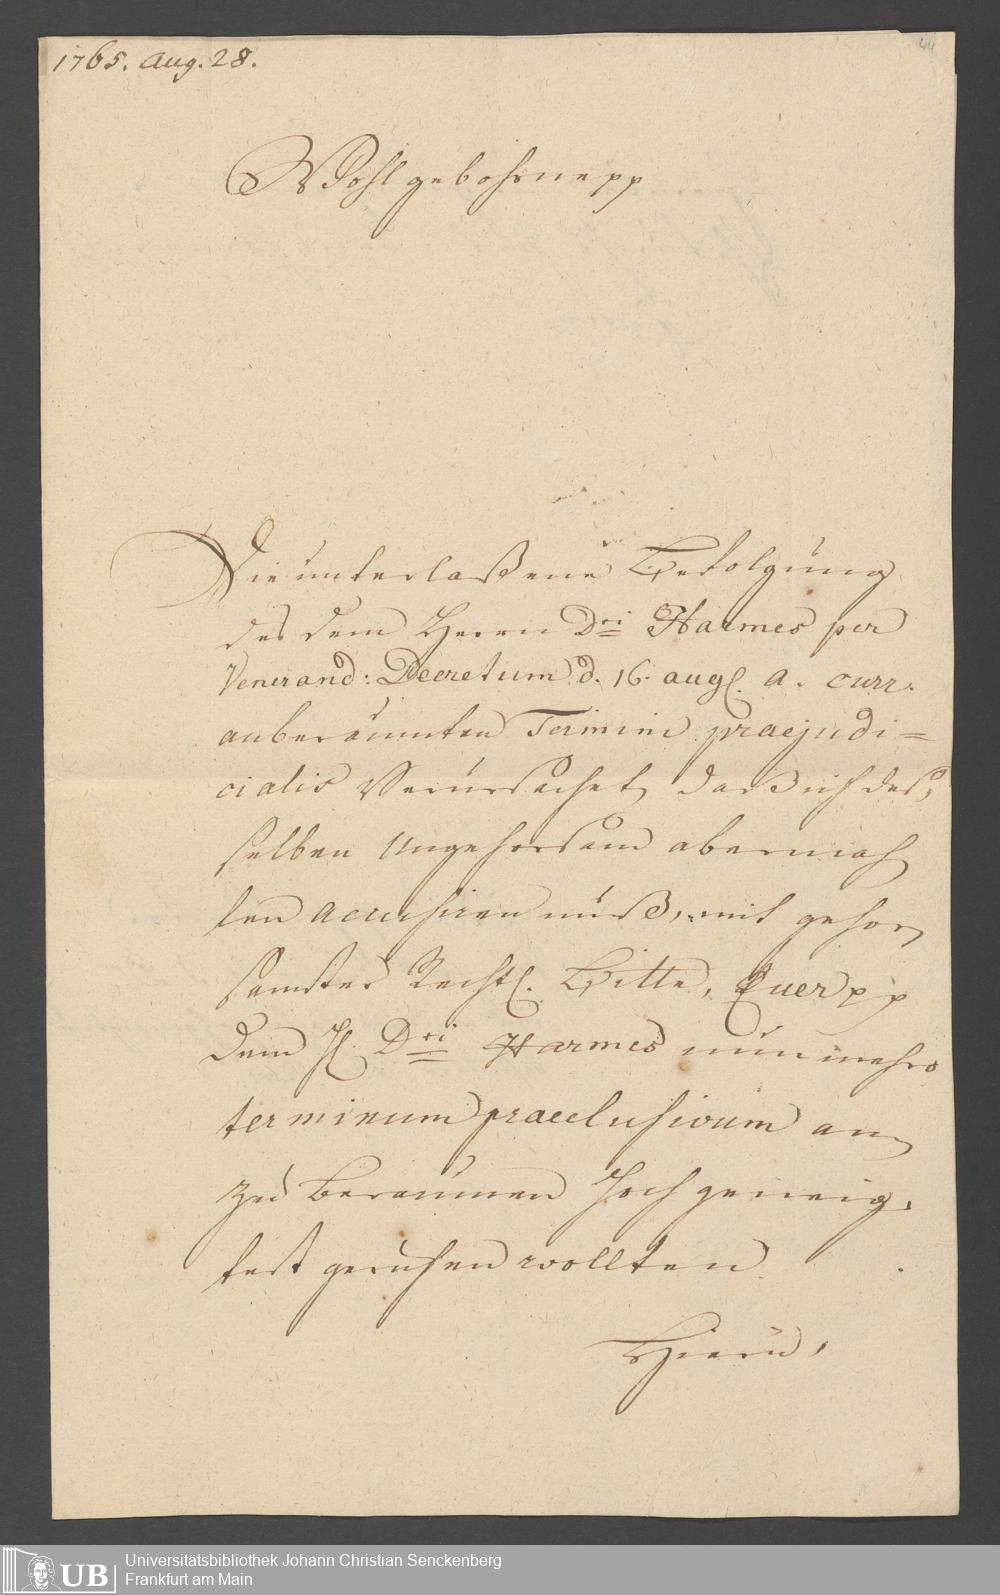 1765. Aug. 28.
44
Wohlgebohrne pp
Die unterlaßene Befolgung
des dem Herrn Dri Harmes per
Venerand: Decretum d. 16. aug. a. curr.
anberaumten Termini praejudi=
cialis Verursachet, daß ich des,
selben Ungehorsam abermah
len accusiren muß, mit gehor
samster Rechtl. Bitte, Euer pp
dem H. Dri Harmes nunmehro
terminum praeclusivum an
zu beraumen hochgeneig,
test geruhen wollten
Hierü,
UB
Universitätsbibliothek Johann Christian Senckenberg
Frankfurt am Main